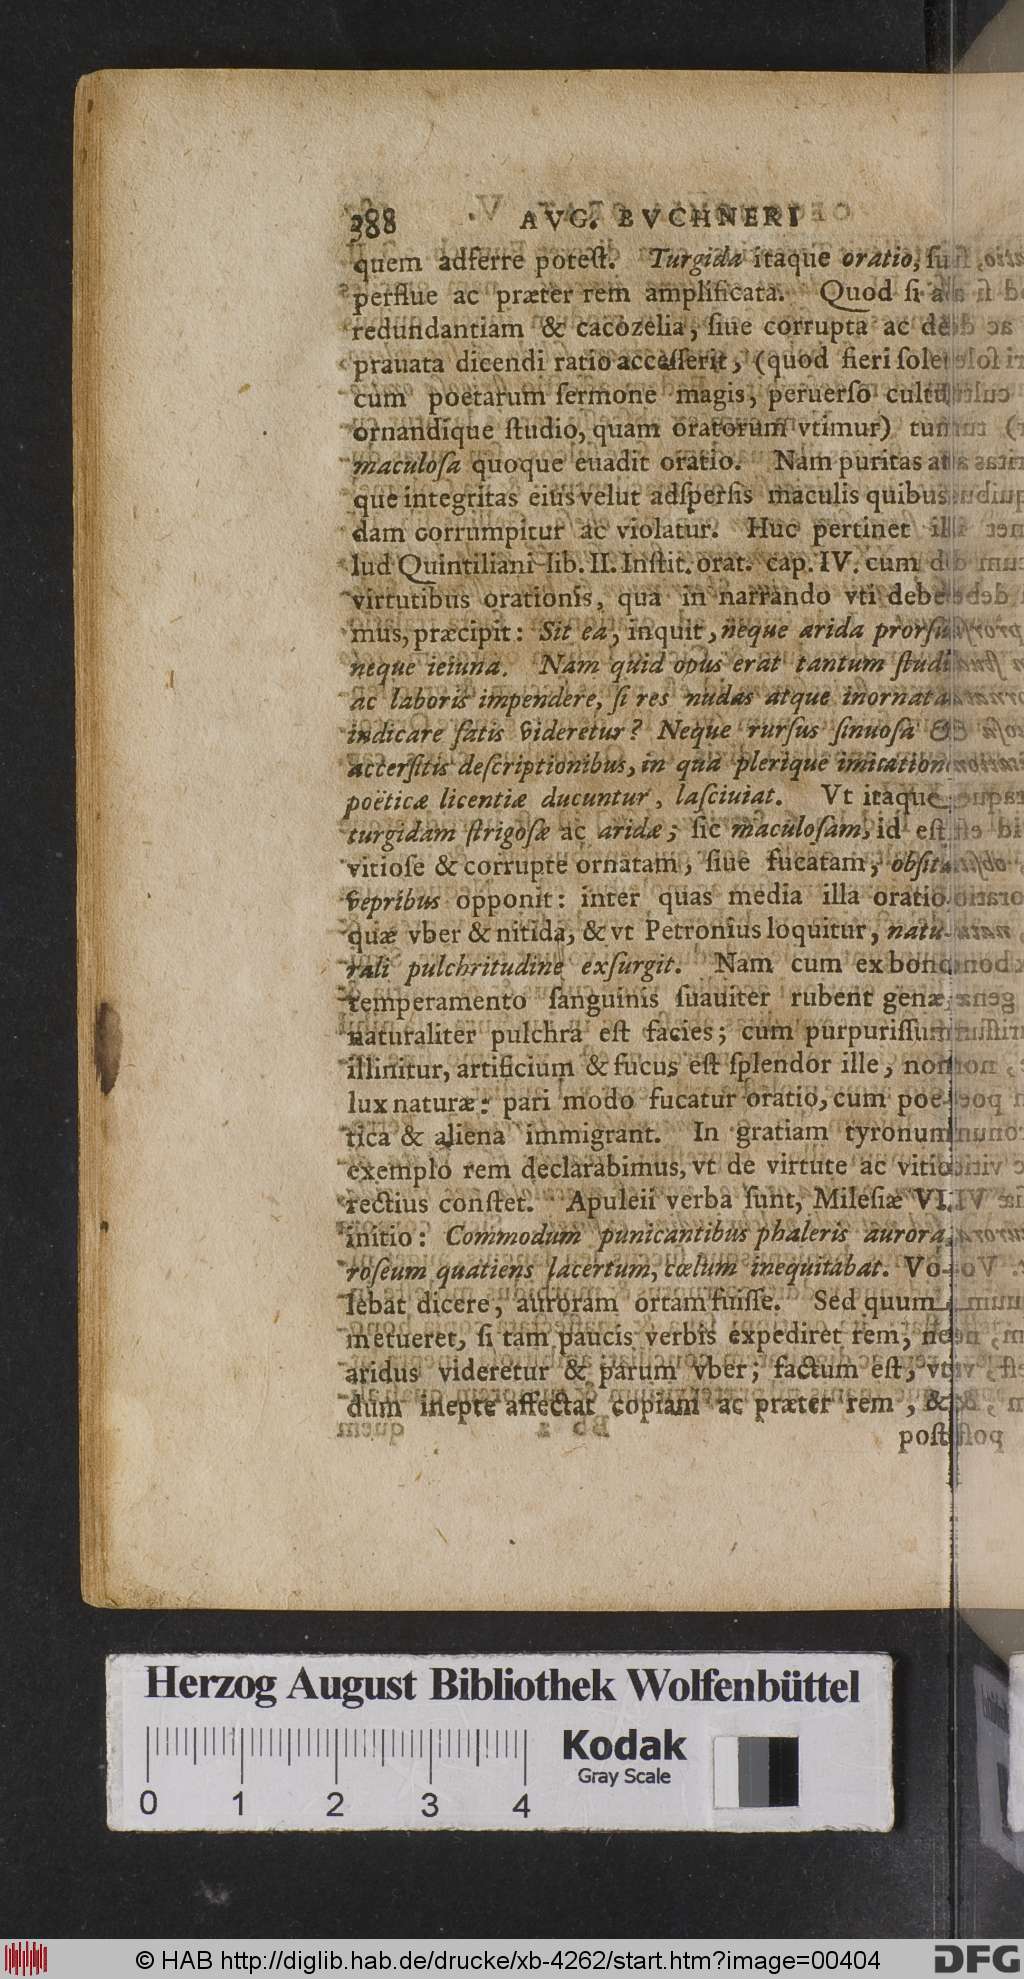 388 AVG. BVCHNERI
quem adferre potest. Turgida itaque oratio, su
perflue ac præter rem amplificata. Quod si a
redundantiam & cacozelia, siue corrupta ac de
prauata dicendi ratio accesserit, (quod fieri solet
cum poetarum sermone magis, peruerso cultu
ornandique studio, quam oratorum vtimur) tum
maculosa quoque euadit oratio. Nam puritas at
que integritas eius velut adspersis maculis quibus
dam corrumpitur ac violatur. Huc pertinet il
lud Quintiliani lib. II. Instit. orat. cap. IV. cum d
virtutibus orationis, qua in narrando vti debe
mus, præcipit: Sit ea, inquit, neque arida prorsu
neque ieiuna. Nam quid opus erat tantum studi
ac laboris impendere, si res nudas atque inornata
indicare satis videretur? Neque rursus sinuosa &
accersitis descriptionibus, in qua plerique imitation
poëticæ licentiæ ducuntur, lasciuiat. Vt itaque
turgidam strigosæ ac aridæ; sic maculosam, id est
vitiose & corrupte ornatam, siue fucatam, obsita
vepribus opponit: inter quas media illa oratio
quæ vber & nitida, & vt Petronius loquitur, natu-
rali pulchritudine exsurgit. Nam cum ex bono
temperamento sanguinis suauiter rubent genæ,
naturaliter pulchra est facies; cum purpurissum
illinitur, artificium & fucus est splendor ille, non
lux naturæ: pari modo fucatur oratio, cum poe-
tica & aliena immigrant. In gratiam tyronum
exemplo rem declarabimus, vt de virtute ac vitio
rectius constet. Apuleii verba sunt, Milesiæ VI.
initio: Commodum punicantibus phaleris aurora,
roseum quatiens lacertum, cœlum inequitabat. Vo-
lebat dicere, auroram ortam fuisse. Sed quum
metueret, si tam paucis verbis expediret rem, ne
aridus videretur & parum vber; factum est, vt
dum inepte affectat copiam ac præter rem, &
post
Herzog August Bibliothek Wolfenbüttel
Kodak
Gray Scale
0 1 2 3 4
© HAB http://diglib.hab.de/drucke/xb-4262/start.htm?image=00404
DFG